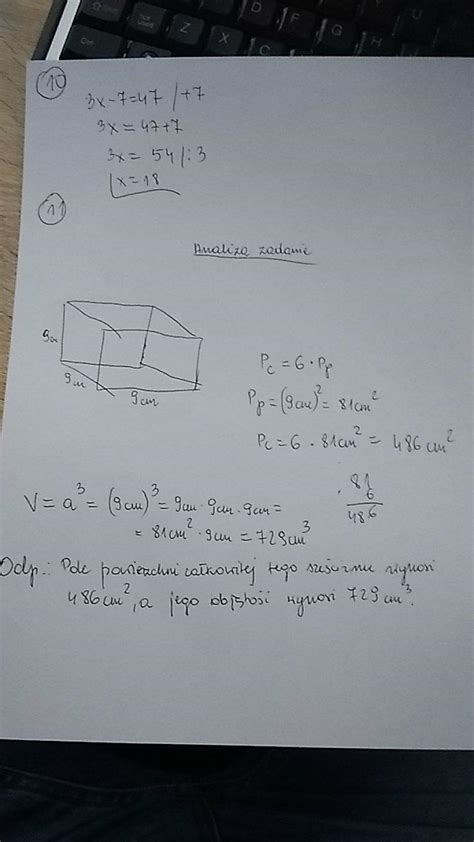 Z X C V B N M
D F G
10
3x-7=47 /+7
3x = 47+7
3x = 54 /:3
x=18
11
Analiza zadanie
9cm
9cm
9cm
Pc = 6 · Pp
Pp = (9cm)² = 81cm²
Pc = 6 · 81cm² = 486cm²
81
· 6
486
V = a³ = (9cm)³ = 9cm · 9cm · 9cm =
= 81cm² · 9cm = 729cm³
Odp.: Pole powierzchni całkowitej tego sześcianu wynosi
486cm², a jego objętość wynosi 729cm³.